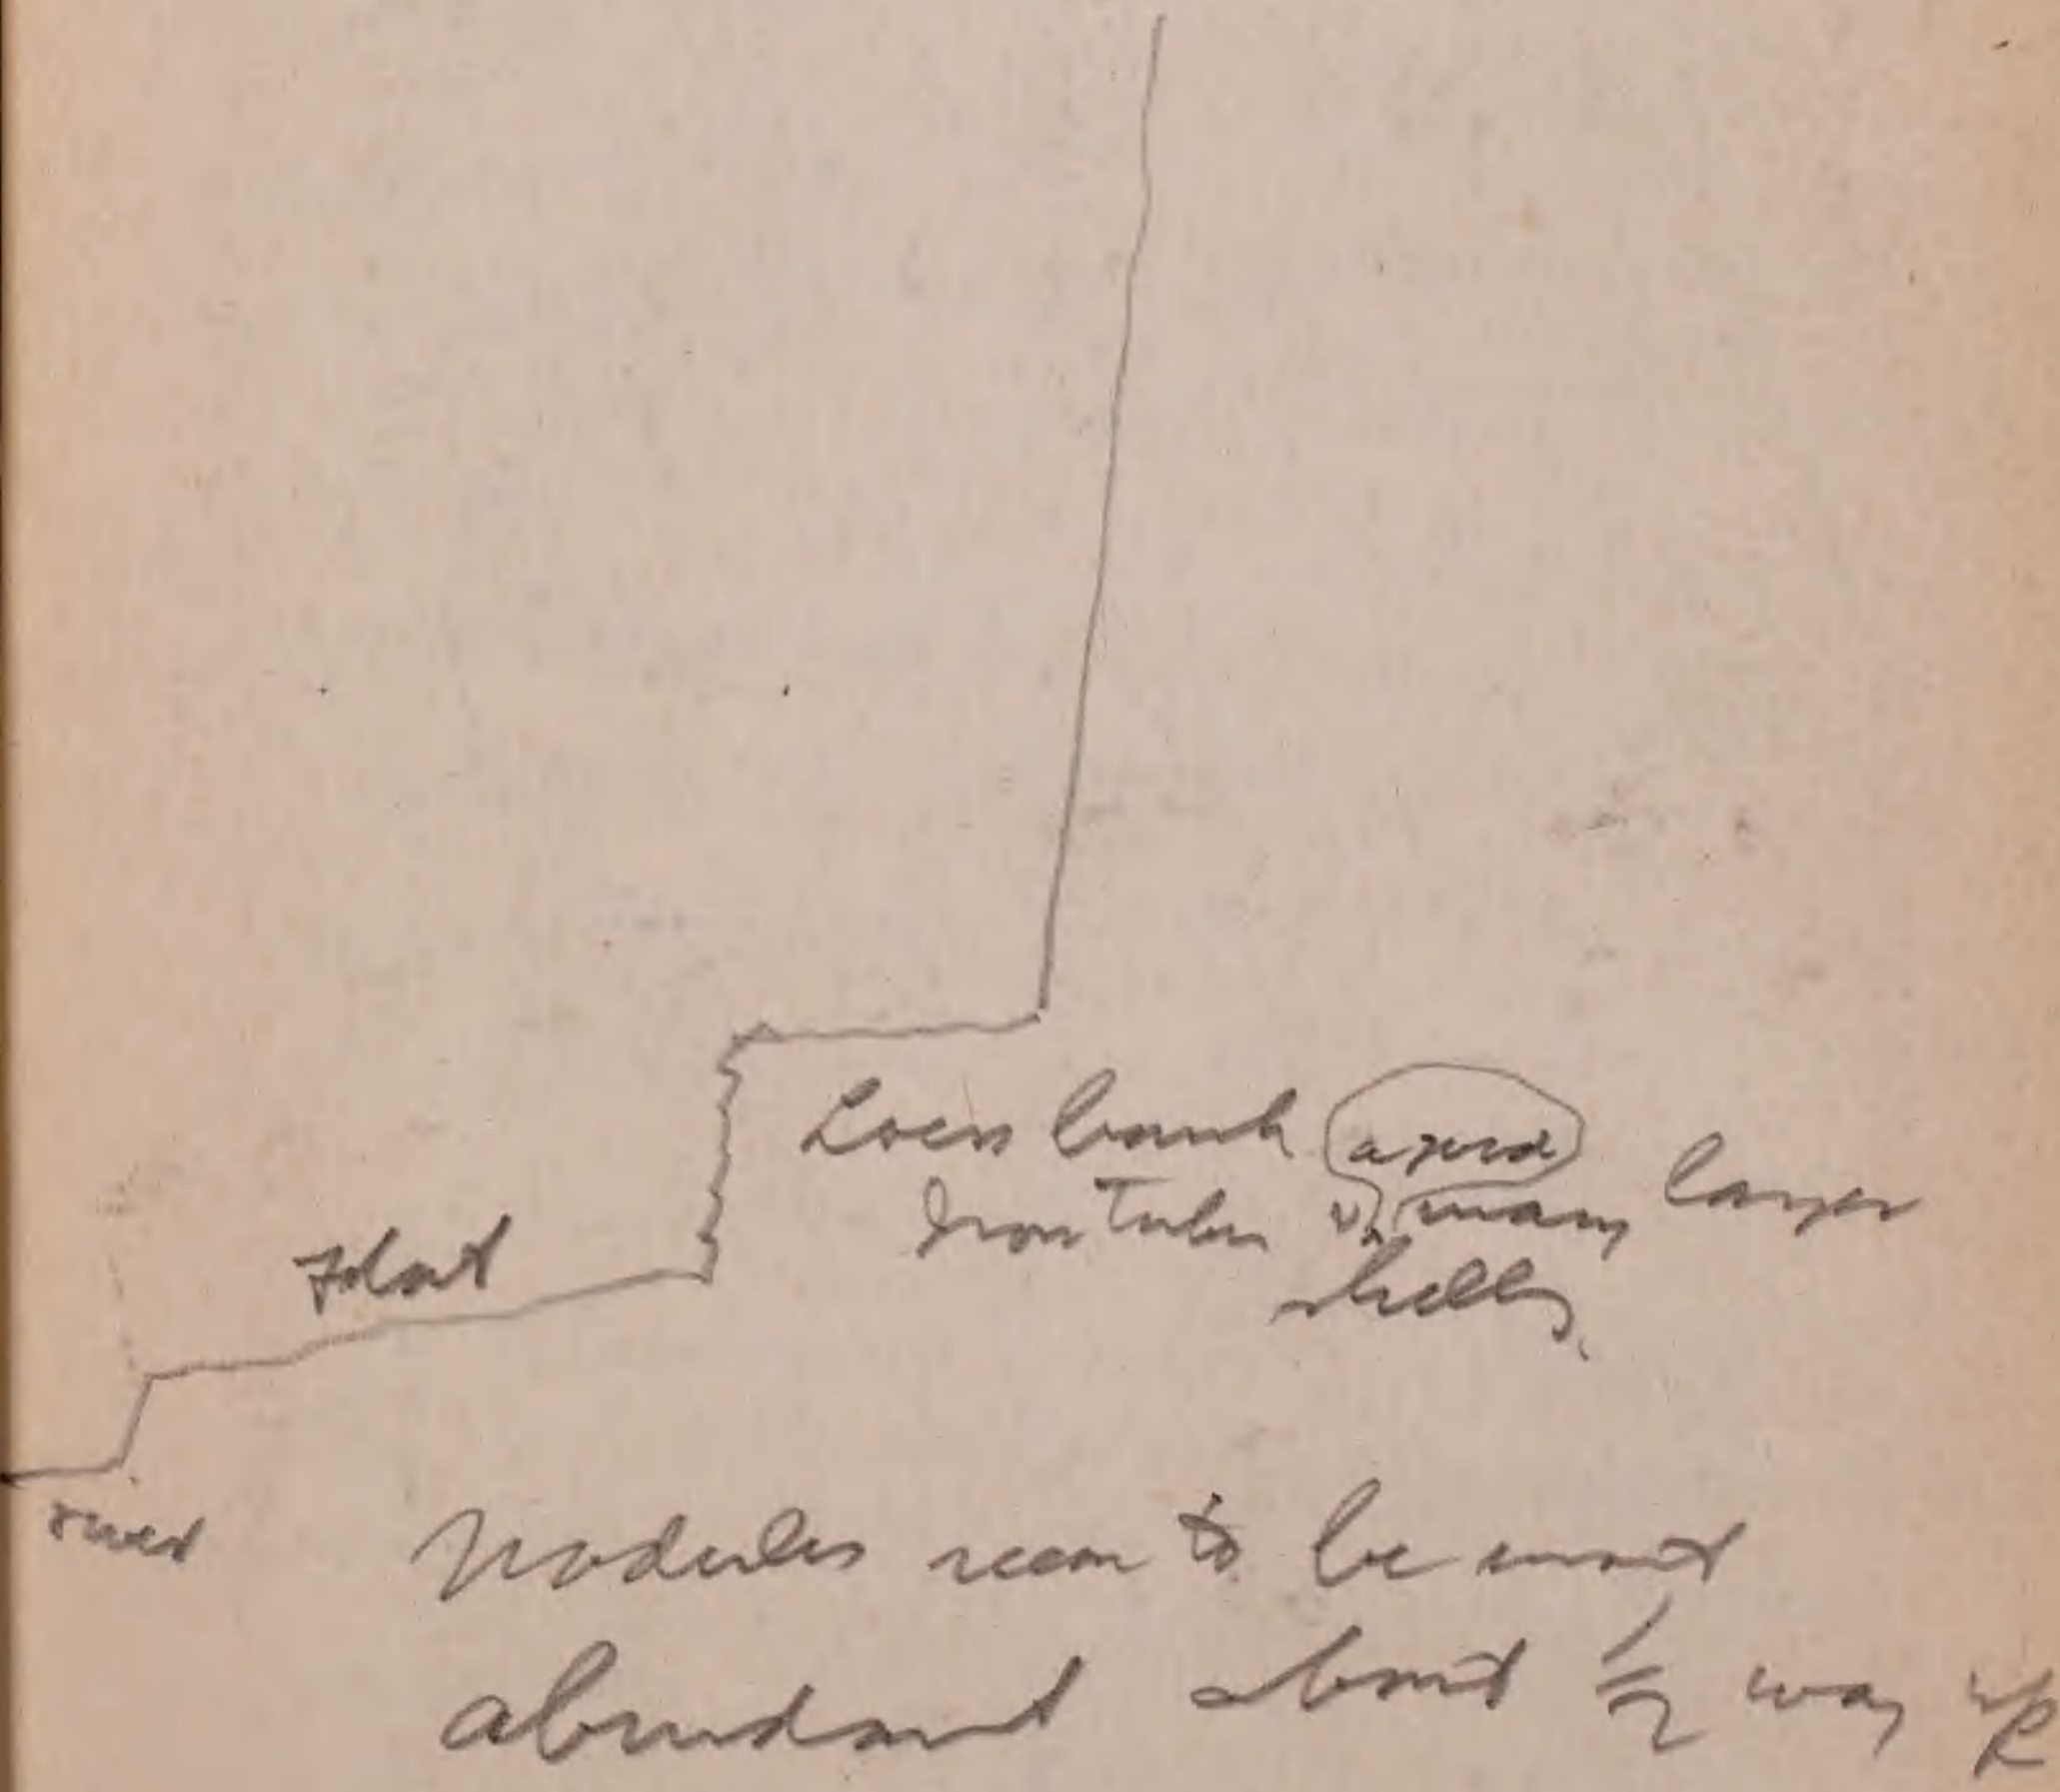 Loess bank
Iron tubes many large
shells.
Flat
river
Nodules seem to be most
abundant about 1/2 way up